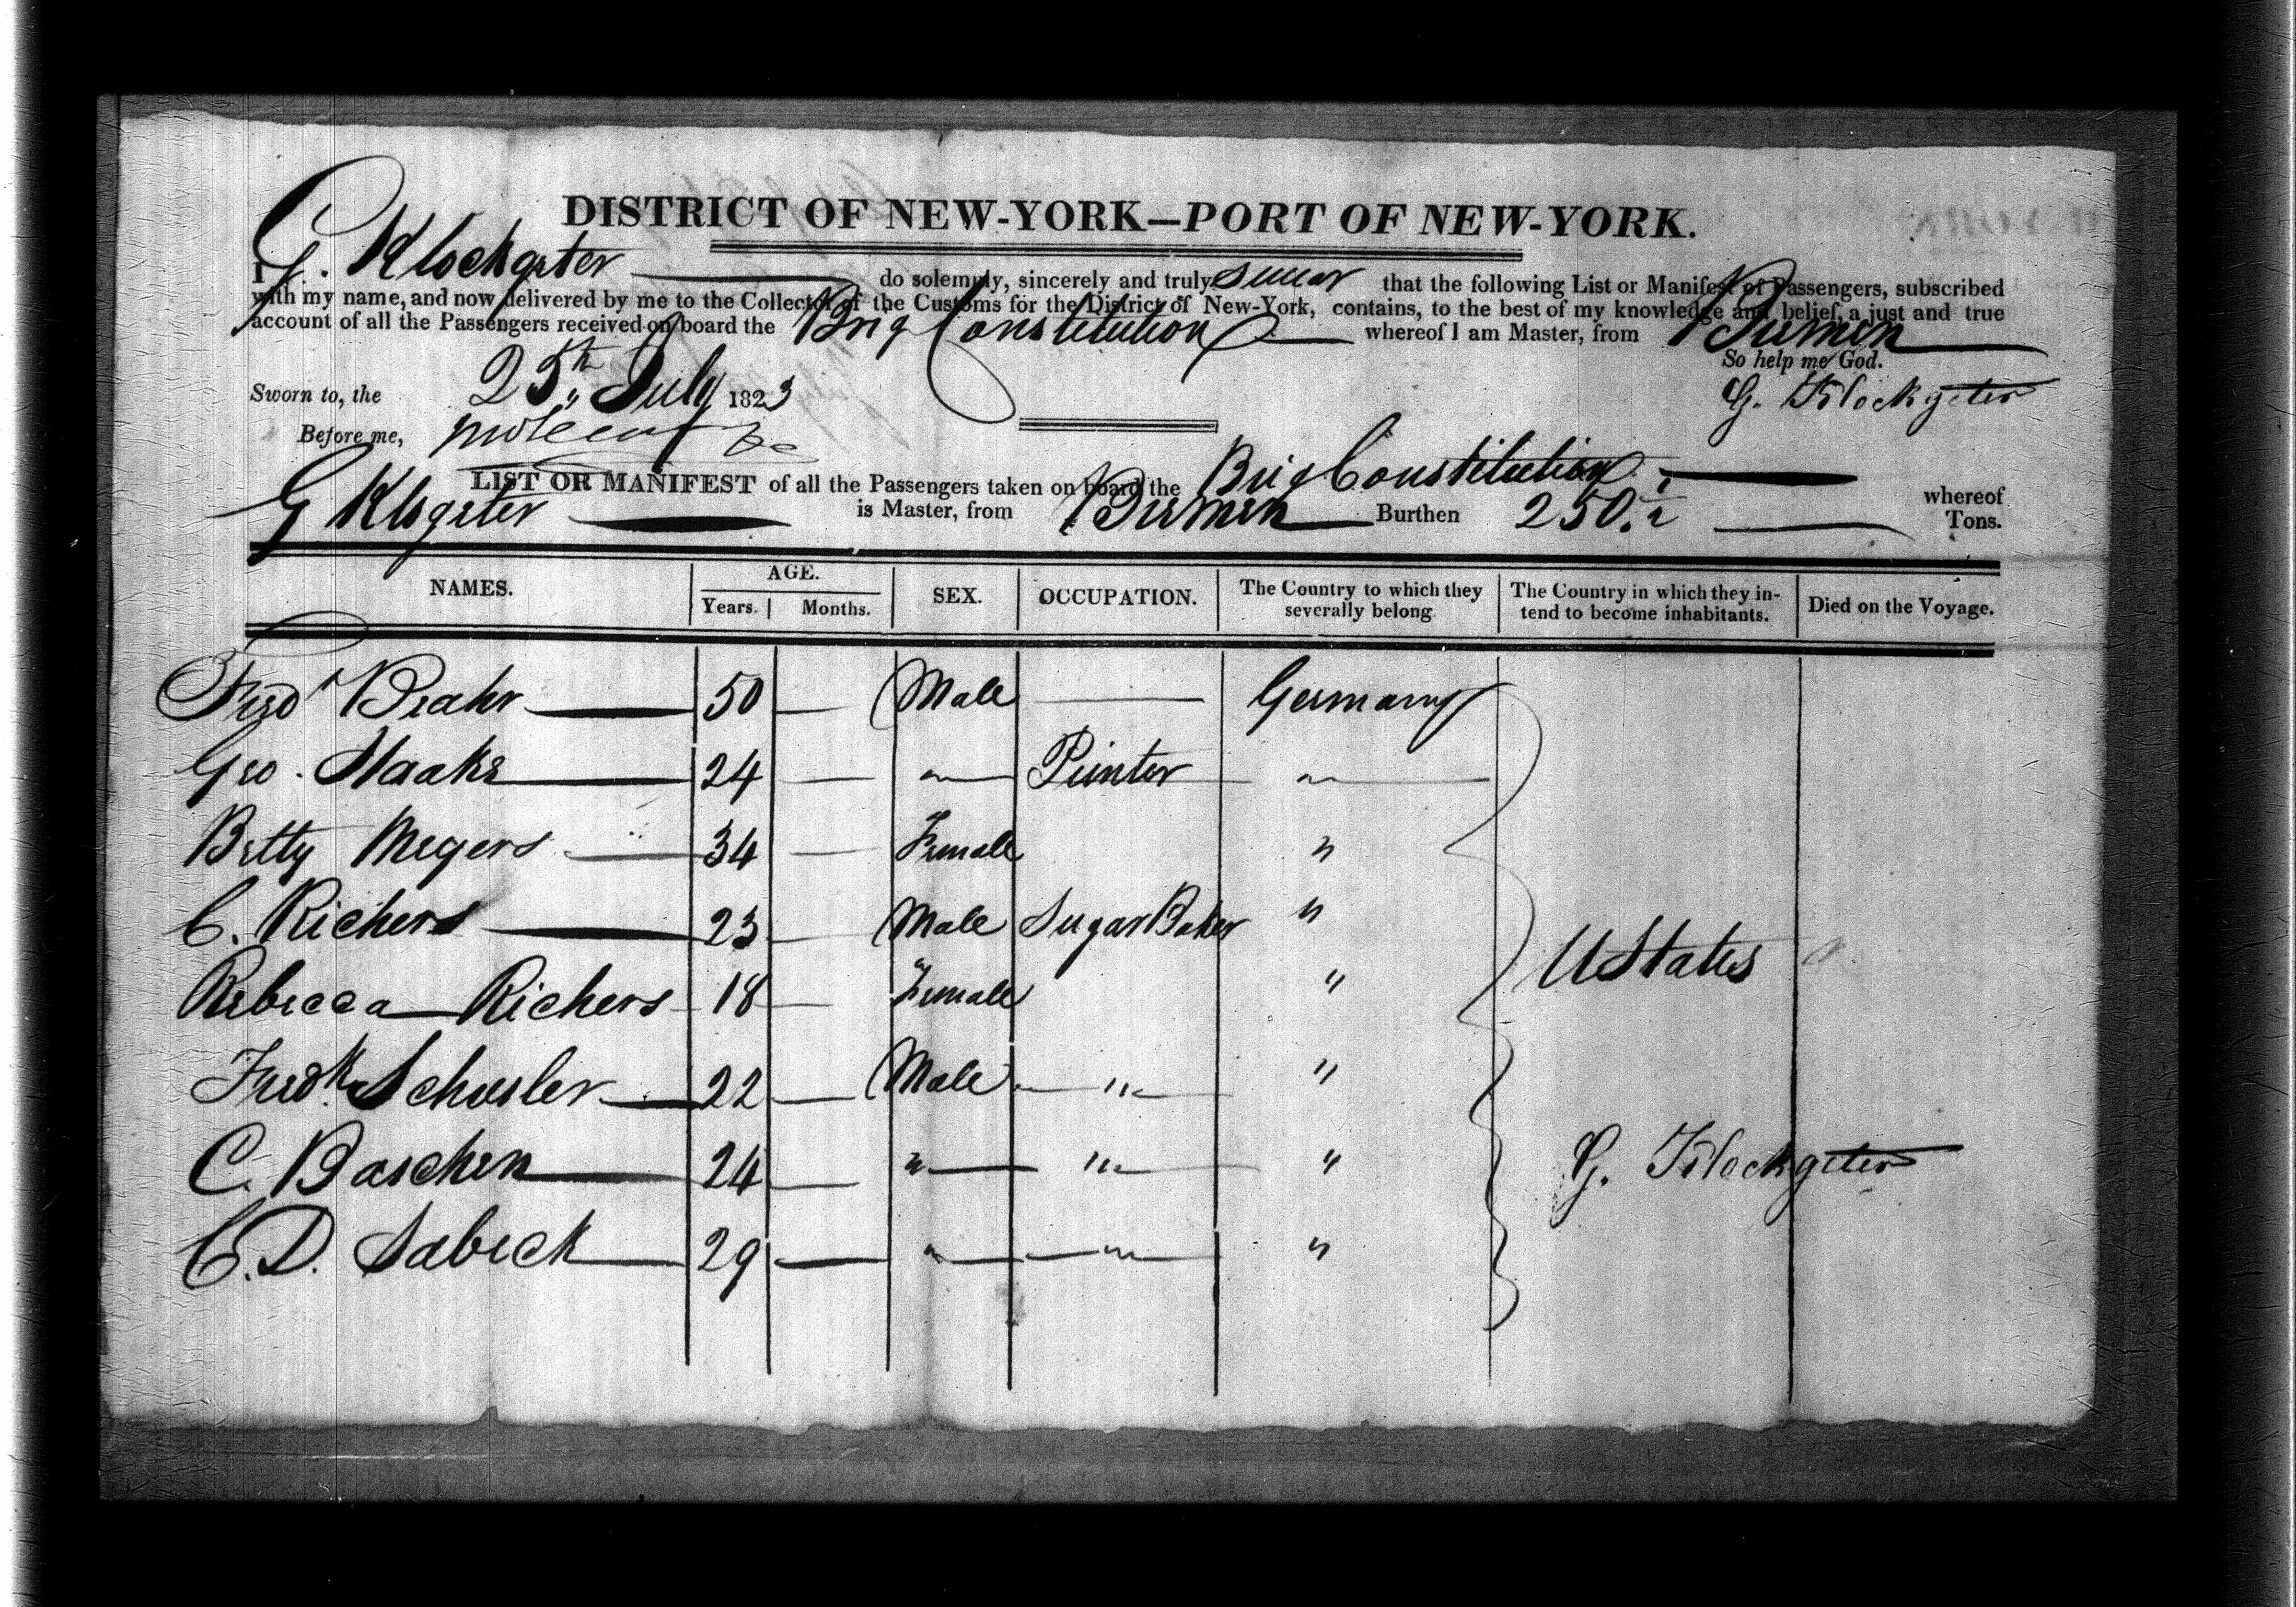 DISTRICT OF NEW-YORK—PORT OF NEW-YORK.
I G. Klockgeter do solemnly, sincerely and truly swear that the following List or Manifest of Passengers, subscribed
with my name, and now delivered by me to the Collector of the Customs for the District of New-York, contains, to the best of my knowledge and belief, a just and true
account of all the Passengers received on board the Brig Constitution whereof I am Master, from Bremen
So help me God.
Sworn to, the 25th July 1823 G. Klockgeter
Before me,
LIST OR MANIFEST of all the Passengers taken on board the Brig Constitution whereof
G Klogeter is Master, from Bremen Burthen 250 Tons.
NAMES. AGE. Years. Months. SEX. OCCUPATION. The Country to which they severally belong The Country in which they intend to become inhabitants. Died on the Voyage.
Fred Beahr 50 — Male — Germany
Geo. Haake 24 — " Printer "
Betty Megers 34 — Female "
C. Richers 23 — Male Sugar Baker "
Rebecca Richers 18 — Female "
UStates
Fredk Schusler 22 — Male " "
C. Boschen 24 — " " "
G. Klockgeter
C. D. Sabeck 29 — " " "